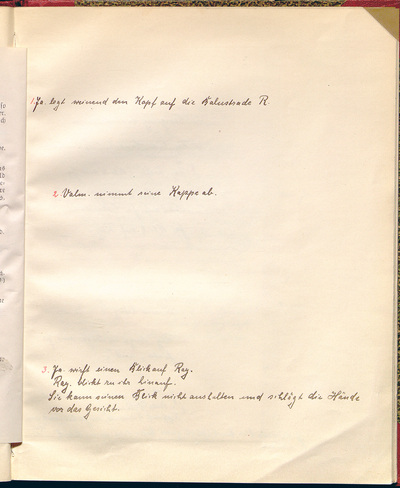 1. Ja. legt weinend den Kopf auf die Balustrade R.
2 Valm. nimmt seine Kappe ab.
3. Ja. wirft einen Blick auf Ray.
Ray. blickt zu ihr hinauf.
Sie kann seinen Blick nicht aushalten und schlägt die Hände
vor das Gesicht.